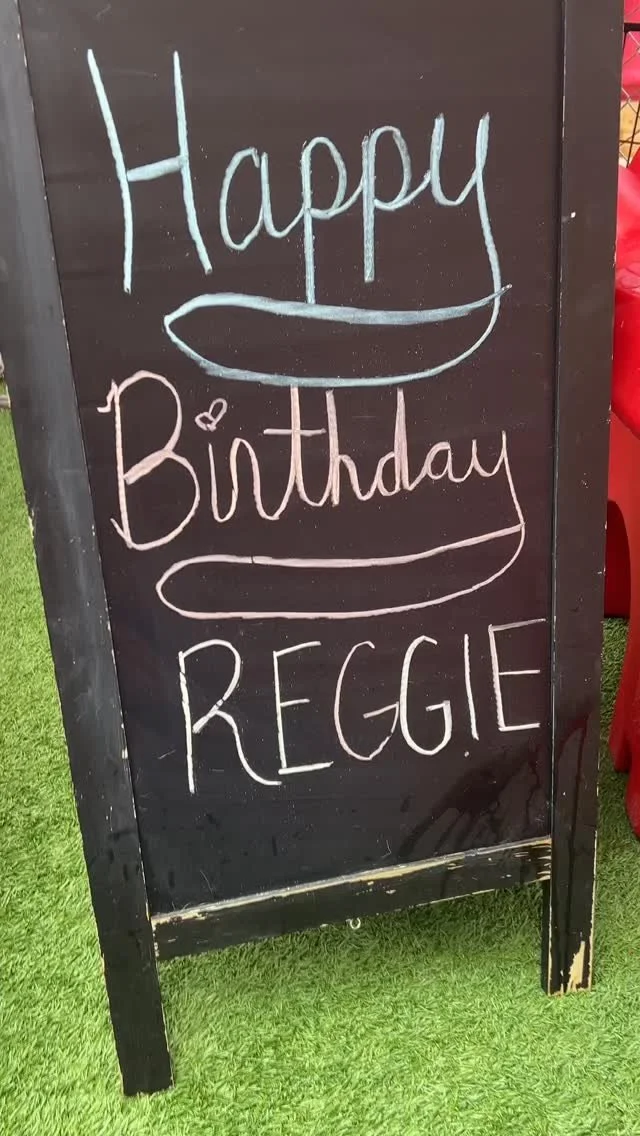 Happy
Birthday
REGGIE